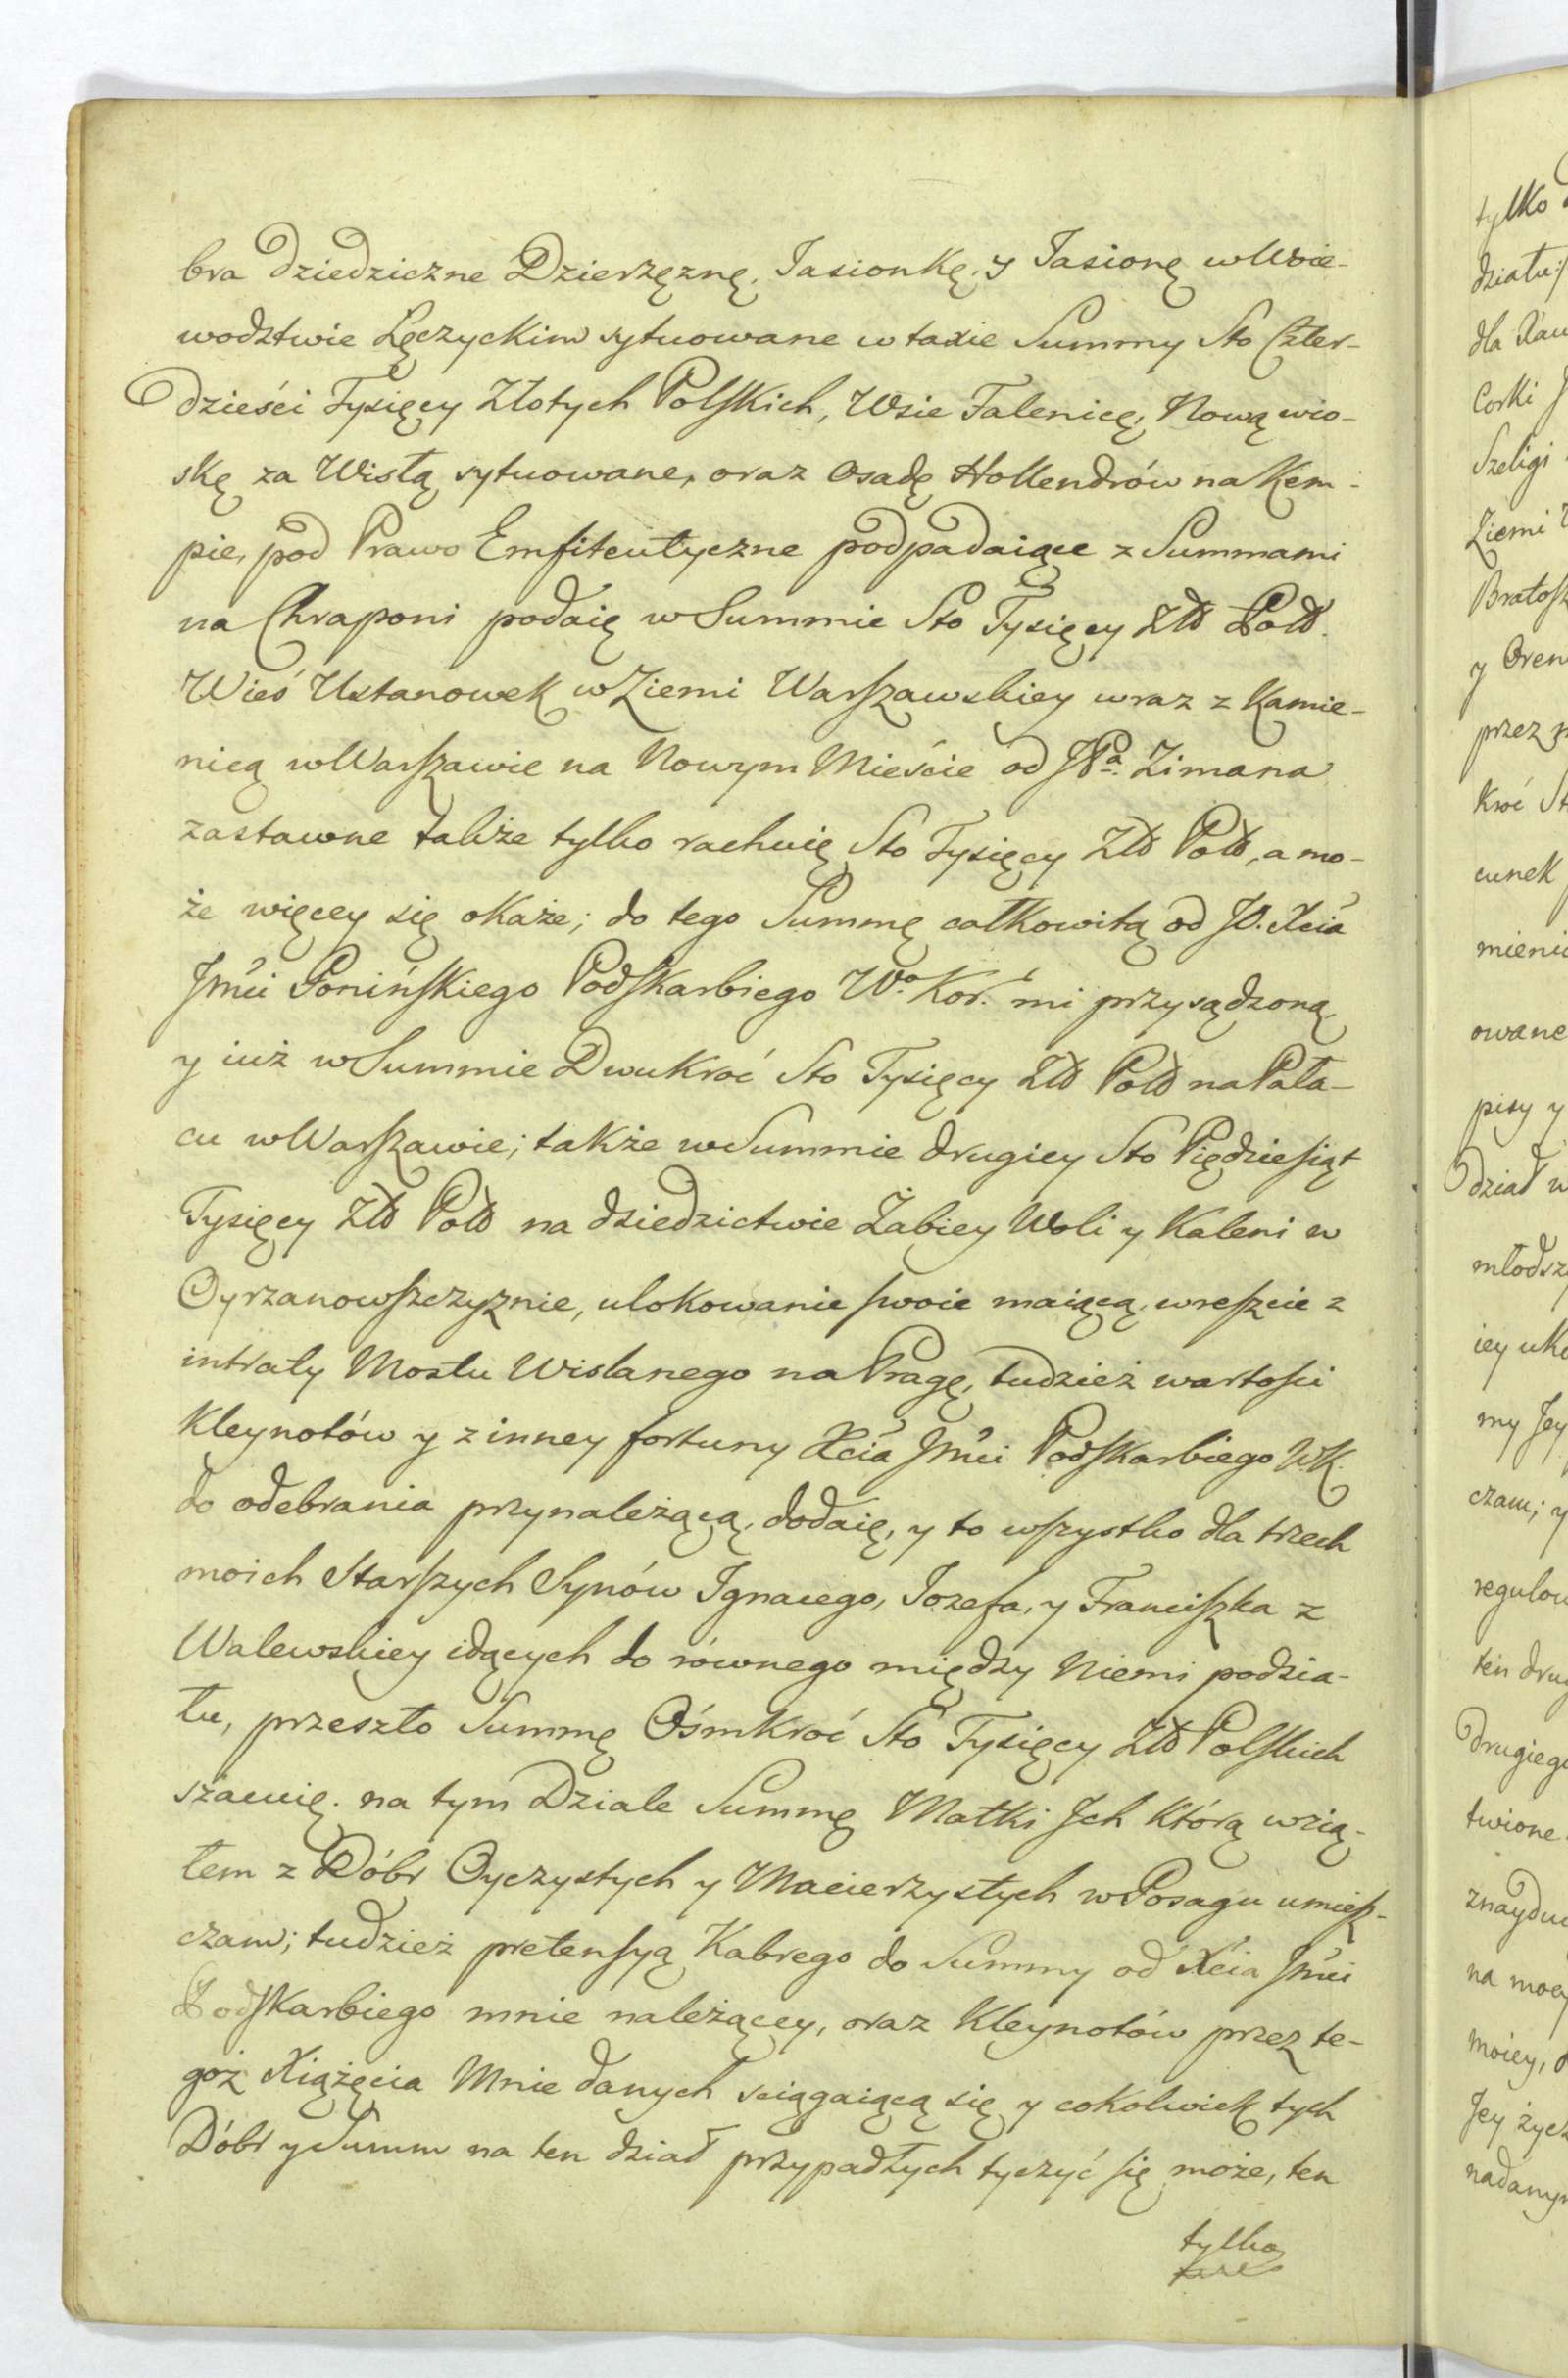 bra Dziedziczne Dzierzęznę, Jasionkę, y Jasionę w Woie-
wodztwie Łęczyckim sytuowane w taxie Summy Sto Czter-
dzieści Tysięcy Złotych Polskich, Wsie Falenicę, Nową wio-
skę za Wisłą sytuowane, oraz Osadę Hollendrów na Kem-
pie, pod Prawo Emfiteutyczne podpadaiące z Summami
na Chraponi podaię w Summie Sto Tysięcy Złt Polt.
Wieś Ustanowek w Ziemi Warszawskiey wraz z Kamie-
nicą w Warszawie na Nowym Mieście od JPa. Zimana
zastawne także tylko rachuię Sto Tysięcy Złt Polt, a mo-
że więcey się okaże; do tego Summę całkowitą od JO. Xcia
Jmći Ponińskiego Podskarbiego Wo. Kor. mi przysądzoną
y iuż w Summie Dwukroć Sto Tysięcy Złt Polt na Pała-
cu w Warszawie; także w Summie drugiey Sto Pięćdziesiąt
Tysięcy Złt Polt na dziedzictwie Żabiey Woli y Kaleni w
Oyrzanowszczyznie, ulokowanie swoie maiącą, wreszcie z
intraty Mostu Wislanego na Pragę, tudzież wartości
Kleynotów y z inney fortuny Xcia Jmći Podskarbiego W.K.
do odebrania przynależącą, dodaię, y to wszystko dla trzech
moich Starszych Synów Ignacego, Jozefa, y Franciszka z
Walewskiey idących do równego między Niemi podzia-
łu, przeszło Summę Ośmkroć Sto Tysięcy Złt Polskich
szacuię. na tym Dziale Summę Matki Jch którą wzią-
łem z Dóbr Oyczystych y Macierzystych w Posagu umiesz-
czam; tudzież pretensyą Kabrego do Summy od Xcia Jmći
Podskarbiego mnie należącey, oraz Kleynotów przez te-
goż Xiążęcia Mnie danych sciągaiącą się y cokolwiek tych
Dóbr y Summ na ten dział przypadłych tyczyć się może, ten
tylko